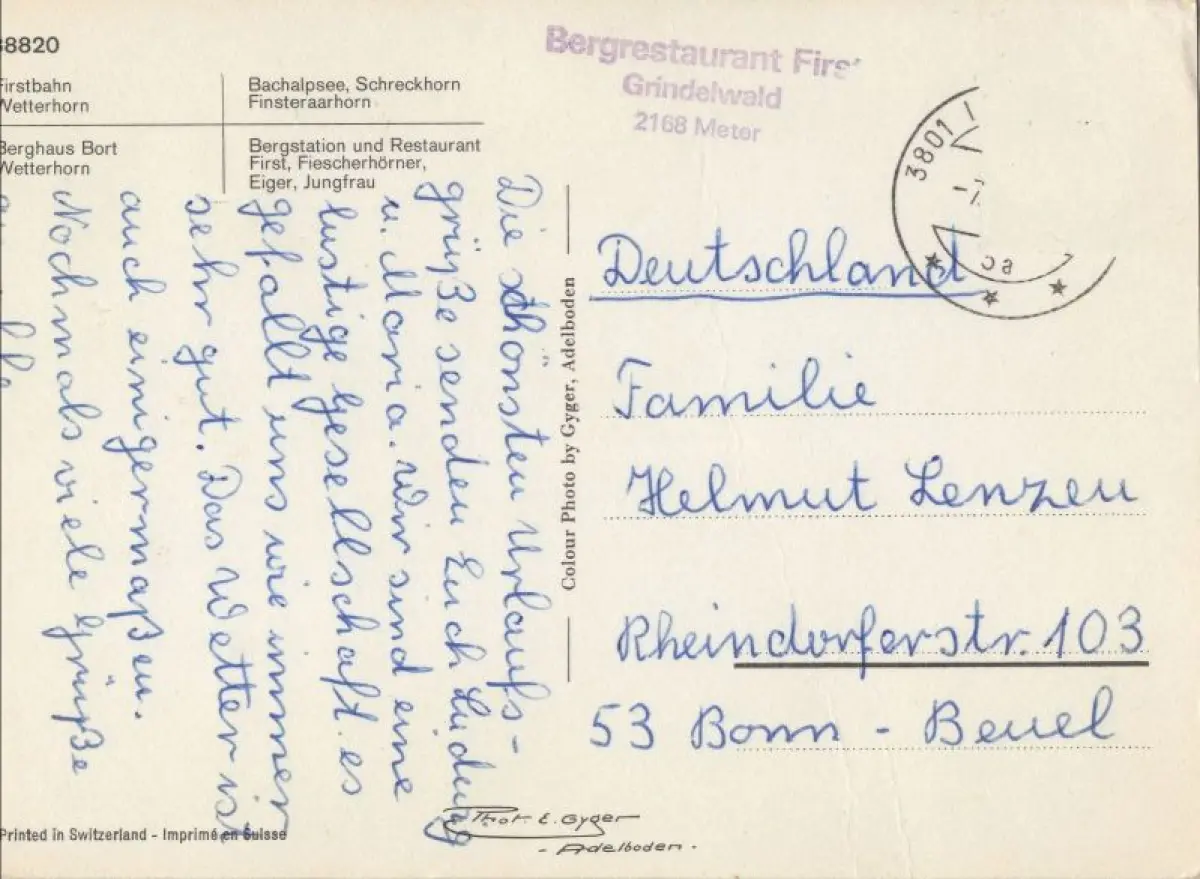 38820
Firstbahn
Wetterhorn
Bachalpsee, Schreckhorn
Finsteraarhorn
Berghaus Bort
Wetterhorn
Bergstation und Restaurant
First, Fiescherhörner,
Eiger, Jungfrau
Bergrestaurant First
Grindelwald
2168 Meter
3801
Die schönsten Urlaubs-
grüße senden Euch
u. Maria. Wir sind eine
lustige Gesellschaft es
gefällt uns wie immer
sehr gut. Das Wetter ist
auch einigermaßen.
Nochmals viele Grüße
Colour Photo by Gyger, Adelboden
Deutschland
Familie
Helmut Lenzen
Rheindorferstr. 103
53 Bonn - Beuel
Printed in Switzerland - Imprimé en Suisse
Phot. E. Gyger
- Adelboden -